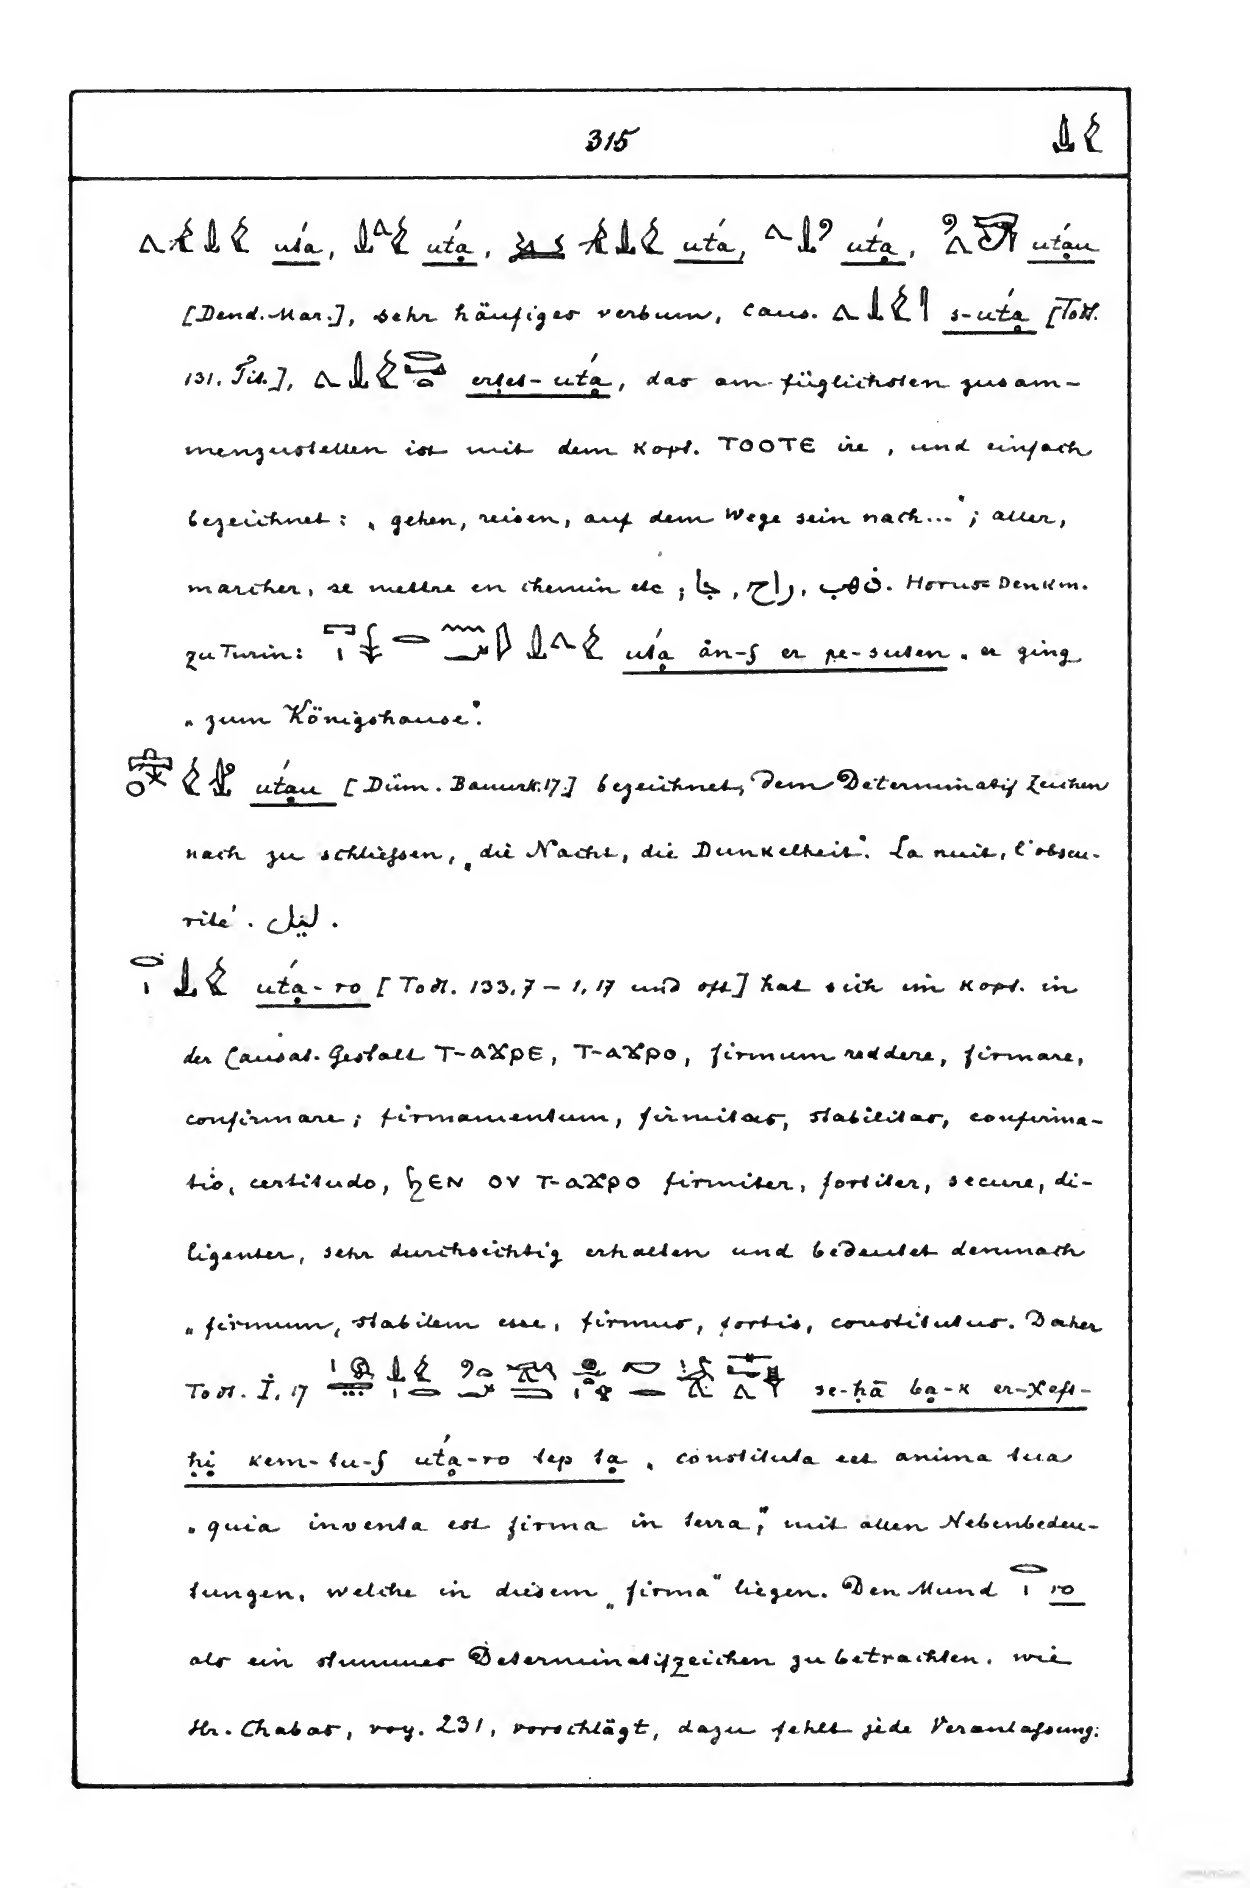 315
utá, utạ́, utá, utạ́, utạ́u
[Dend. Mar.], sehr häufiges verbum, caus. s-utạ́ [Todt.
131. Tit.], erṭeṭ-utạ́, das am füglichsten zusam-
menzustellen ist mit dem kopt. ⲦⲞⲞⲦⲈ ire, und einfach
bezeichnet: „gehen, reisen, auf dem Wege sein nach..."; aller,
marcher, se mettre en chemin etc; جا, راح, ذهب. Horus=Denkm.
zu Turin: utạ́ ȧn-f er pe-suten „er ging
„zum Königshause".
utạ́u [Düm. Bauurk. 17.] bezeichnet, dem Determinatif Zeichen
nach zu schliefsen, „die Nacht, die Dunkelheit". La nuit, l'obscu-
rité. ليل.
utạ́-ro [Todt. 133,7 – 1,17 und oft] hat sich im kopt. in
der Causat. Gestalt Ⲧ-ⲀϪⲢⲈ, Ⲧ-ⲀϪⲢⲞ, firmum reddere, firmare,
confirmare; firmamentum, firmitas, stabilitas, confirma-
tio, certitudo, ϦⲈⲚ ⲞⲨ Ⲧ-ⲀϪⲢⲞ firmiter, fortiter, secure, di-
ligenter, sehr durchsichtig erhalten und bedeutet demnach
„firmum, stabilem esse, firmus, fortis, constitutus. Daher
Todt. I, 17 se-ḥā bạ-k er-χeft-
ḥị kem-tu-f utạ́-ro tep tạ „constituta est anima tua
„quia inventa est firma in terra", mit allen Nebenbedeu-
tungen, welche in diesem „firma" liegen. Den Mund ro
als ein stummes Determinatifzeichen zu betrachten, wie
Hr. Chabas, voy. 231, vorschlägt, dazu fehlt jede Veranlafsung.